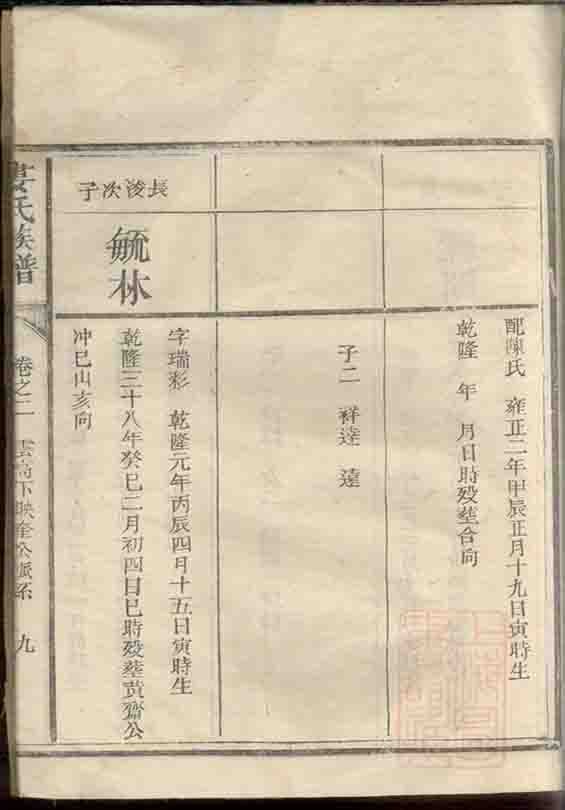 配陳氏　雍正二年甲辰正月十九日寅時生
乾隆　年　月日時歿塟合向
子二　祥逵　達
長浚次子
毓林
字瑞彩　乾隆元年丙辰四月十五日寅時生
乾隆三十八年癸巳二月初四日巳時歿塟黄齋公
冲巳山亥向
氏族譜
卷之二
下映奎公派系
九